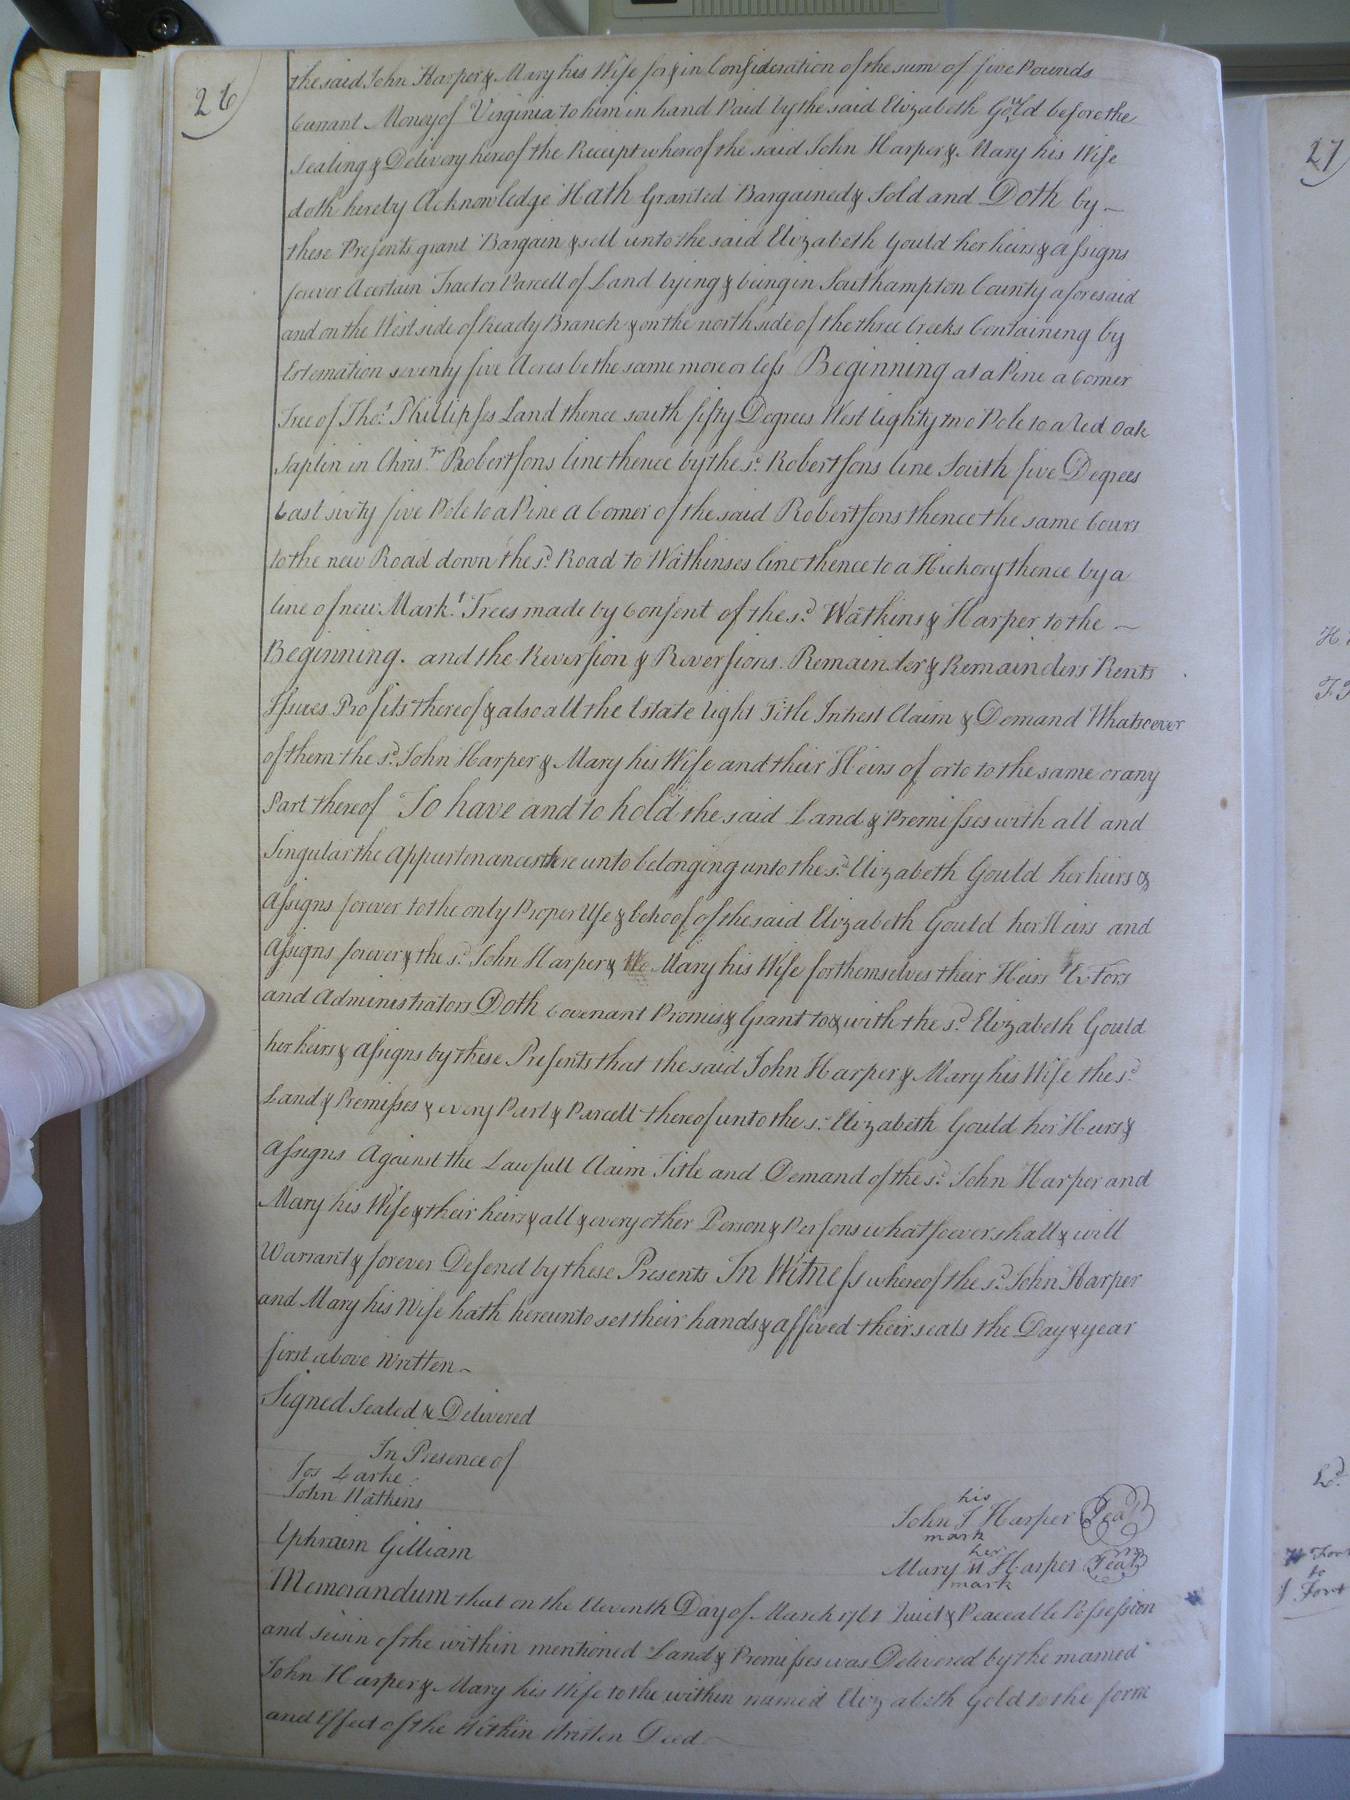 26
the said John Harper & Mary his Wife for & in Consideration of the sum of five Pounds
Currant Money of Virginia to him in hand Paid by the said Elizabeth Gould before the
Sealing & Delivery hereof the Receipt whereof the said John Harper & Mary his Wife
doth hereby Acknowledge Hath Granted Bargained & Sold and Doth by
these Presents grant Bargain & sell unto the said Elizabeth Gould her heirs & assigns
forever A certain Tract or Parcell of Land lying & being in Southampton County aforesaid
and on the West side of Ready Branch & on the north side of the three Creeks Containing by
Estemation seventy five Acres be the same more or less Beginning at a Pine a Corner
Tree of Thos. Phillipses Land thence south fifty Degrees West Eighty two Pole to a Red Oak
Saplin in Christr. Robertsons line thence by the sd. Robertsons line South five Degrees
East sixty five Pole to a Pine a Corner of the said Robertsons thence the same Cours
to the new Road down the sd. Road to Watkinses line thence to a Hickory thence by a
line of new Markt. Trees made by Consent of the sd. Watkins & Harper to the
Beginning. and the Reversion & Reversions. Remainder & Remainders Rents
Issues Profits thereof & also all the Estate Right Title Intrest Claim & Demand Whatsoever
of them the sd. John Harper & Mary his Wife and their Heirs of or to to the same or any
Part thereof To have and to hold the said Land & Premisses with all and
Singular the Appurtenances there unto belonging unto the sd. Elizabeth Gould her heirs &
Assigns forever to the only Proper Use & behoof of the said Elizabeth Gould her Heirs and
Assigns forever & the sd. John Harper & Mary his Wife for themselves their Heirs Extors
and Administrators Doth Covenant Promis & Grant to & with the sd. Elizabeth Gould
her heirs & assigns by these Presents that the said John Harper & Mary his Wife the sd.
Land & Premisses & every Part & Parcell thereof unto the sd. Elizabeth Gould her Heirs &
Assigns Against the Lawfull Claim Title and Demand of the sd. John Harper and
Mary his Wife & their heirs & all & every other Person & Persons whatsoever shall & will
Warrant & forever Defend by these Presents In Witness whereof the sd. John Harper
and Mary his Wife hath hereunto set their hands & affixed their seals the Day & year
first above Written
Signed Sealed & Delivered
In Presence of
Jos Larke
John Watkins
Ephraim Gilliam
his
John J Harper Seal
mark
her
Mary H Harper Seal
mark
Memorandum that on the Eleventh Day of March 1761 Quiet & Peaceable Possession
and Seisin of the within mentioned Land & Premisses was Delivered by the named
John Harper & Mary his Wife to the within named Elizabeth Gold to the form
and Effect of the Within Writen Deed
27